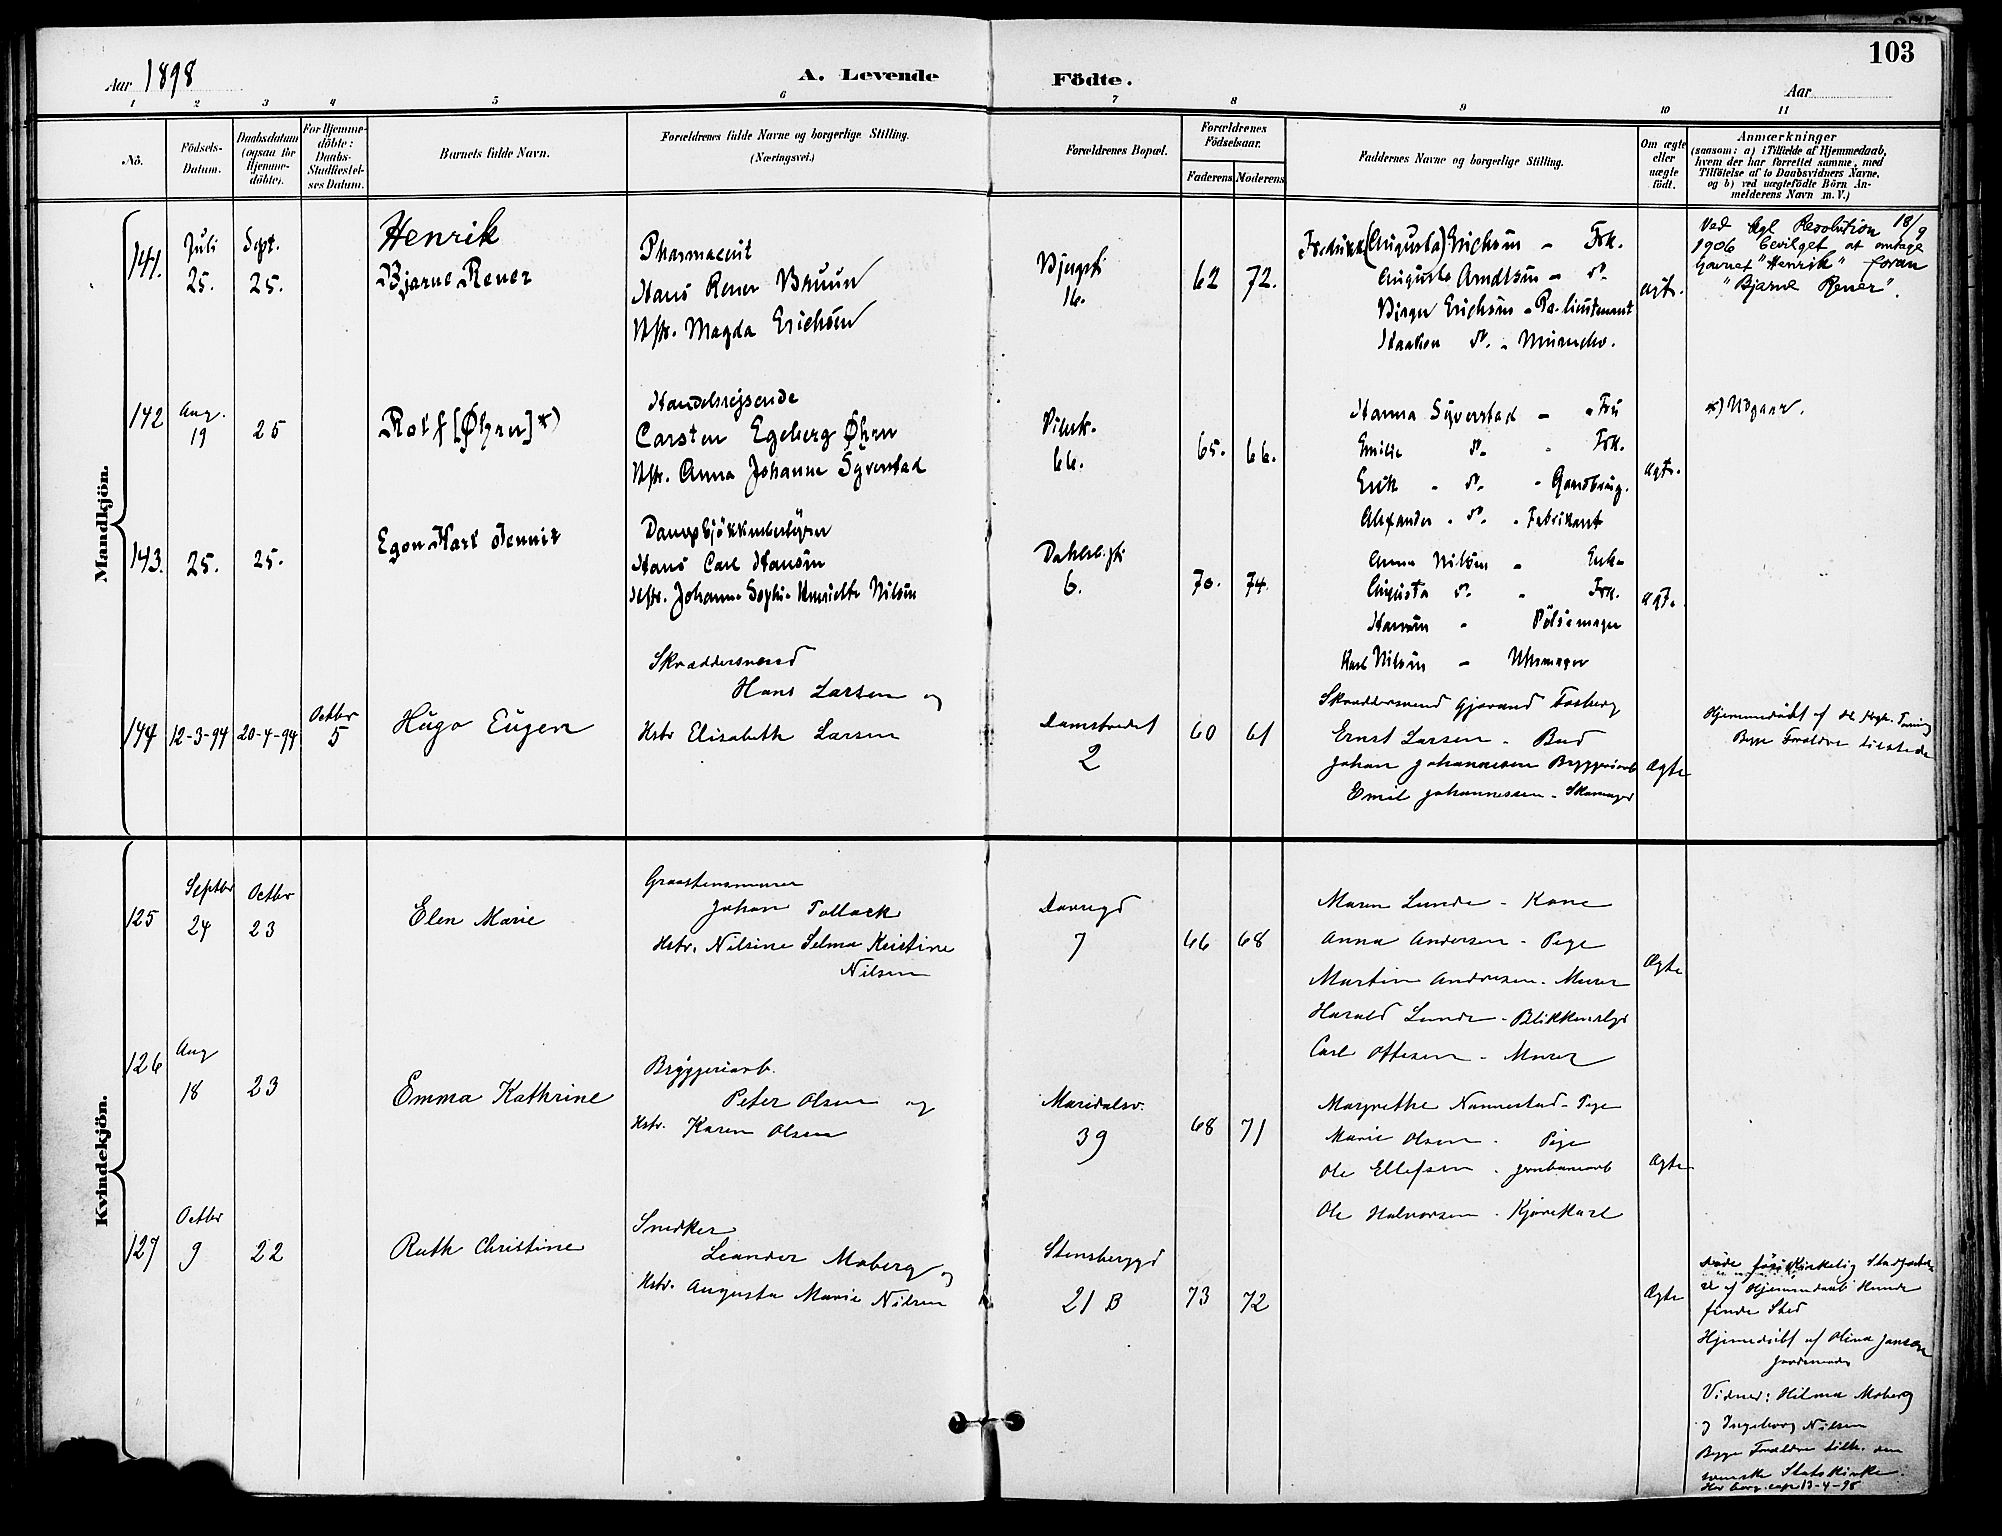 103
Aar 1898
A. Levende
Födte.
Aar
1 2 3 4 5 6 7 8 9 10 11
No.
Födsels-Datum.
Daabsdatum (ogsaa for Hjemme-döbte).
For Hjemme-döbte: Daabs-Stadfæstel-ses Datum.
Barnets fulde Navn.
Forældrenes fulde Navne og borgerlige Stilling. (Næringsvei.)
Forældrenes Bopæl.
Forældrenes Födselsaar.
Faderens Moderens
Faddernes Navne og borgerlige Stilling.
Om ægte eller uægte födt.
Anmærkninger
(saasom: a) i Tilfælde af Hjemmedaab,
hvem der har forrettet samme, med
Tilföielse af to Daabsvidners Navne,
og b) ved uægtefödte Börn An-
melderens Navn m. V.)
Mandkjön.
141. Juli 25. Sept. 25.
Henrik
Bjarne Rener
Pharmaceut
Hans Rener Bruun
Hstr. Magda Erichsen
16.
62 72.
(Augusta) Erichsen - Frk.
Augusta Arndtsen - do.
Birger Erichsen - Pr. lieutenant
Haakon do.
ægte.
Ved kgl Resolution 18/9
1906 bevilget at antage
Navnet "Henrik" foran
"Bjarne Rener".
142 Aug. 19 25
Rolf [Øhren] *)
Handelsrejsende
Carsten Egeberg Øhren
Hstr. Anna Johanne Syverstad
66.
65. 66.
Hanna Syverstad - Fru
Emilie do. - Frk.
Erik - do. - Gaardbrug.
Alexander - do. - Fabrikant
ægte.
*) Udgaar.
143. 25. 25.
Egon Karl
Hans Carl Hansen
Hstr. Johanne Sophie Henriette Nilsen
Dahlsbgt
6.
70. 74.
Anna Nilsen - Enke
Augusta do. - Frk.
Hansen - Pölsemager
Karl Nilsen - Uhrmager
ægte.
144 12-3-94 20-4-94 Octbr 5
Hugo Eugen
Skræddersvend
Hans Larsen og
Hstr Elisabeth Larsen
Damstredet
2
60 61
Skræddersvend Gjerand Fosberg
Ernst Larsen - Bud
Johan Johannesen Bryggeriarb
Emil Johannessen - Skomager
Ægte
Hjemmedöbt af
Begge Forældre tilstede
Kvindekjön.
125 Septbr 24 Octbr 23
Elen Marie
Graastensmurer
Johan Tollack
Hstr. Nilsine Selma Kristine
Nilsen
7
66 68
Maren Lunde - Kone
Anna Andersen - Pige
Martin Andresen - Murer
Harald Lunde - Blikkenslgr
Carl Ottesen - Murer
Ægte
126 Aug 18 23
Emma Kathrine
Bryggeriarb.
Peter Olsen og
Hstr. Karen Olsen
Maridalsv.
39
68 71
Margrethe Nannestad - Pige
Marie Olsen - Pige
Ole Ellefsen - Jernbanearb
Ole Halvorsen - Kjørekarl
Ægte
127 Octbr 9 22
Ruth Christine
Snedker
Leander Moberg og
Hstr. Augusta Marie Nilsen
Stensberggd
21 B
73 72
Ægte
døde før Kirkelig Stadfæstel-
se af Hjemmedaab kunde
finde Sted
Hjemedöbt af Olina Jansen
Jordemoder
Vidner: Hilma Moberg
og Ingeborg Nilsen
Begge Forældre tilh. den
svenske Statskirke.
13-4-95